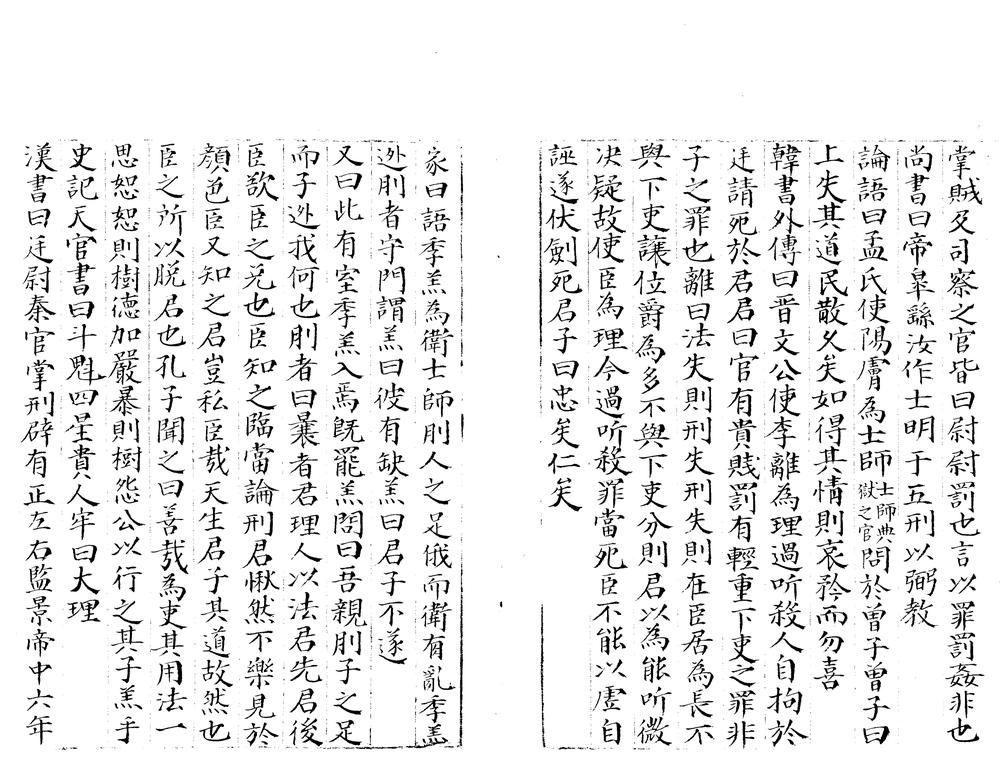 掌賊及司察之官皆曰尉尉罰也言以罪罰姦非也
尚書曰帝曰皐繇汝作士明于五刑以弼教
論語曰孟氏使陽膚為士師士師典獄之官問於曾子曾子曰
上失其道民散久矣如得其情則哀矜而勿喜
韓書外傳曰晋文公使李離為理過听殺人自拘於
廷請死於君君曰官有貴賤罰有輕重下吏之罪非
子之罪也離曰法失則刑失刑失則在臣居為長不
與下吏讓位爵為多不與下吏分則君以為能听微
决疑故使臣為理今過听殺罪當死臣不能以虚自
誣遂伏劍死君子曰忠矣仁矣
家曰語季羔為衛士師刖人之足俄而衛有亂季羔
迯刖者守門謂羔曰彼有缺羔曰君子不遂
又曰此有室季羔入焉既罷羔問曰吾親刖子之足
而子迯我何也刖者曰曩者君理人以法君先君後
臣欲臣之免也臣知之臨當論刑君愀然不樂見於
顔色臣又知之君豈私臣㦲天生君子其道故然也
臣之所以脱君也孔子聞之曰善㦲為吏其用法一
思恕恕則樹德加嚴暴則樹怨公以行之其子羔乎
史記天官書曰斗魁四星貴人牢曰大理
漢書曰廷尉秦官掌刑辟有正左右監景帝中六年